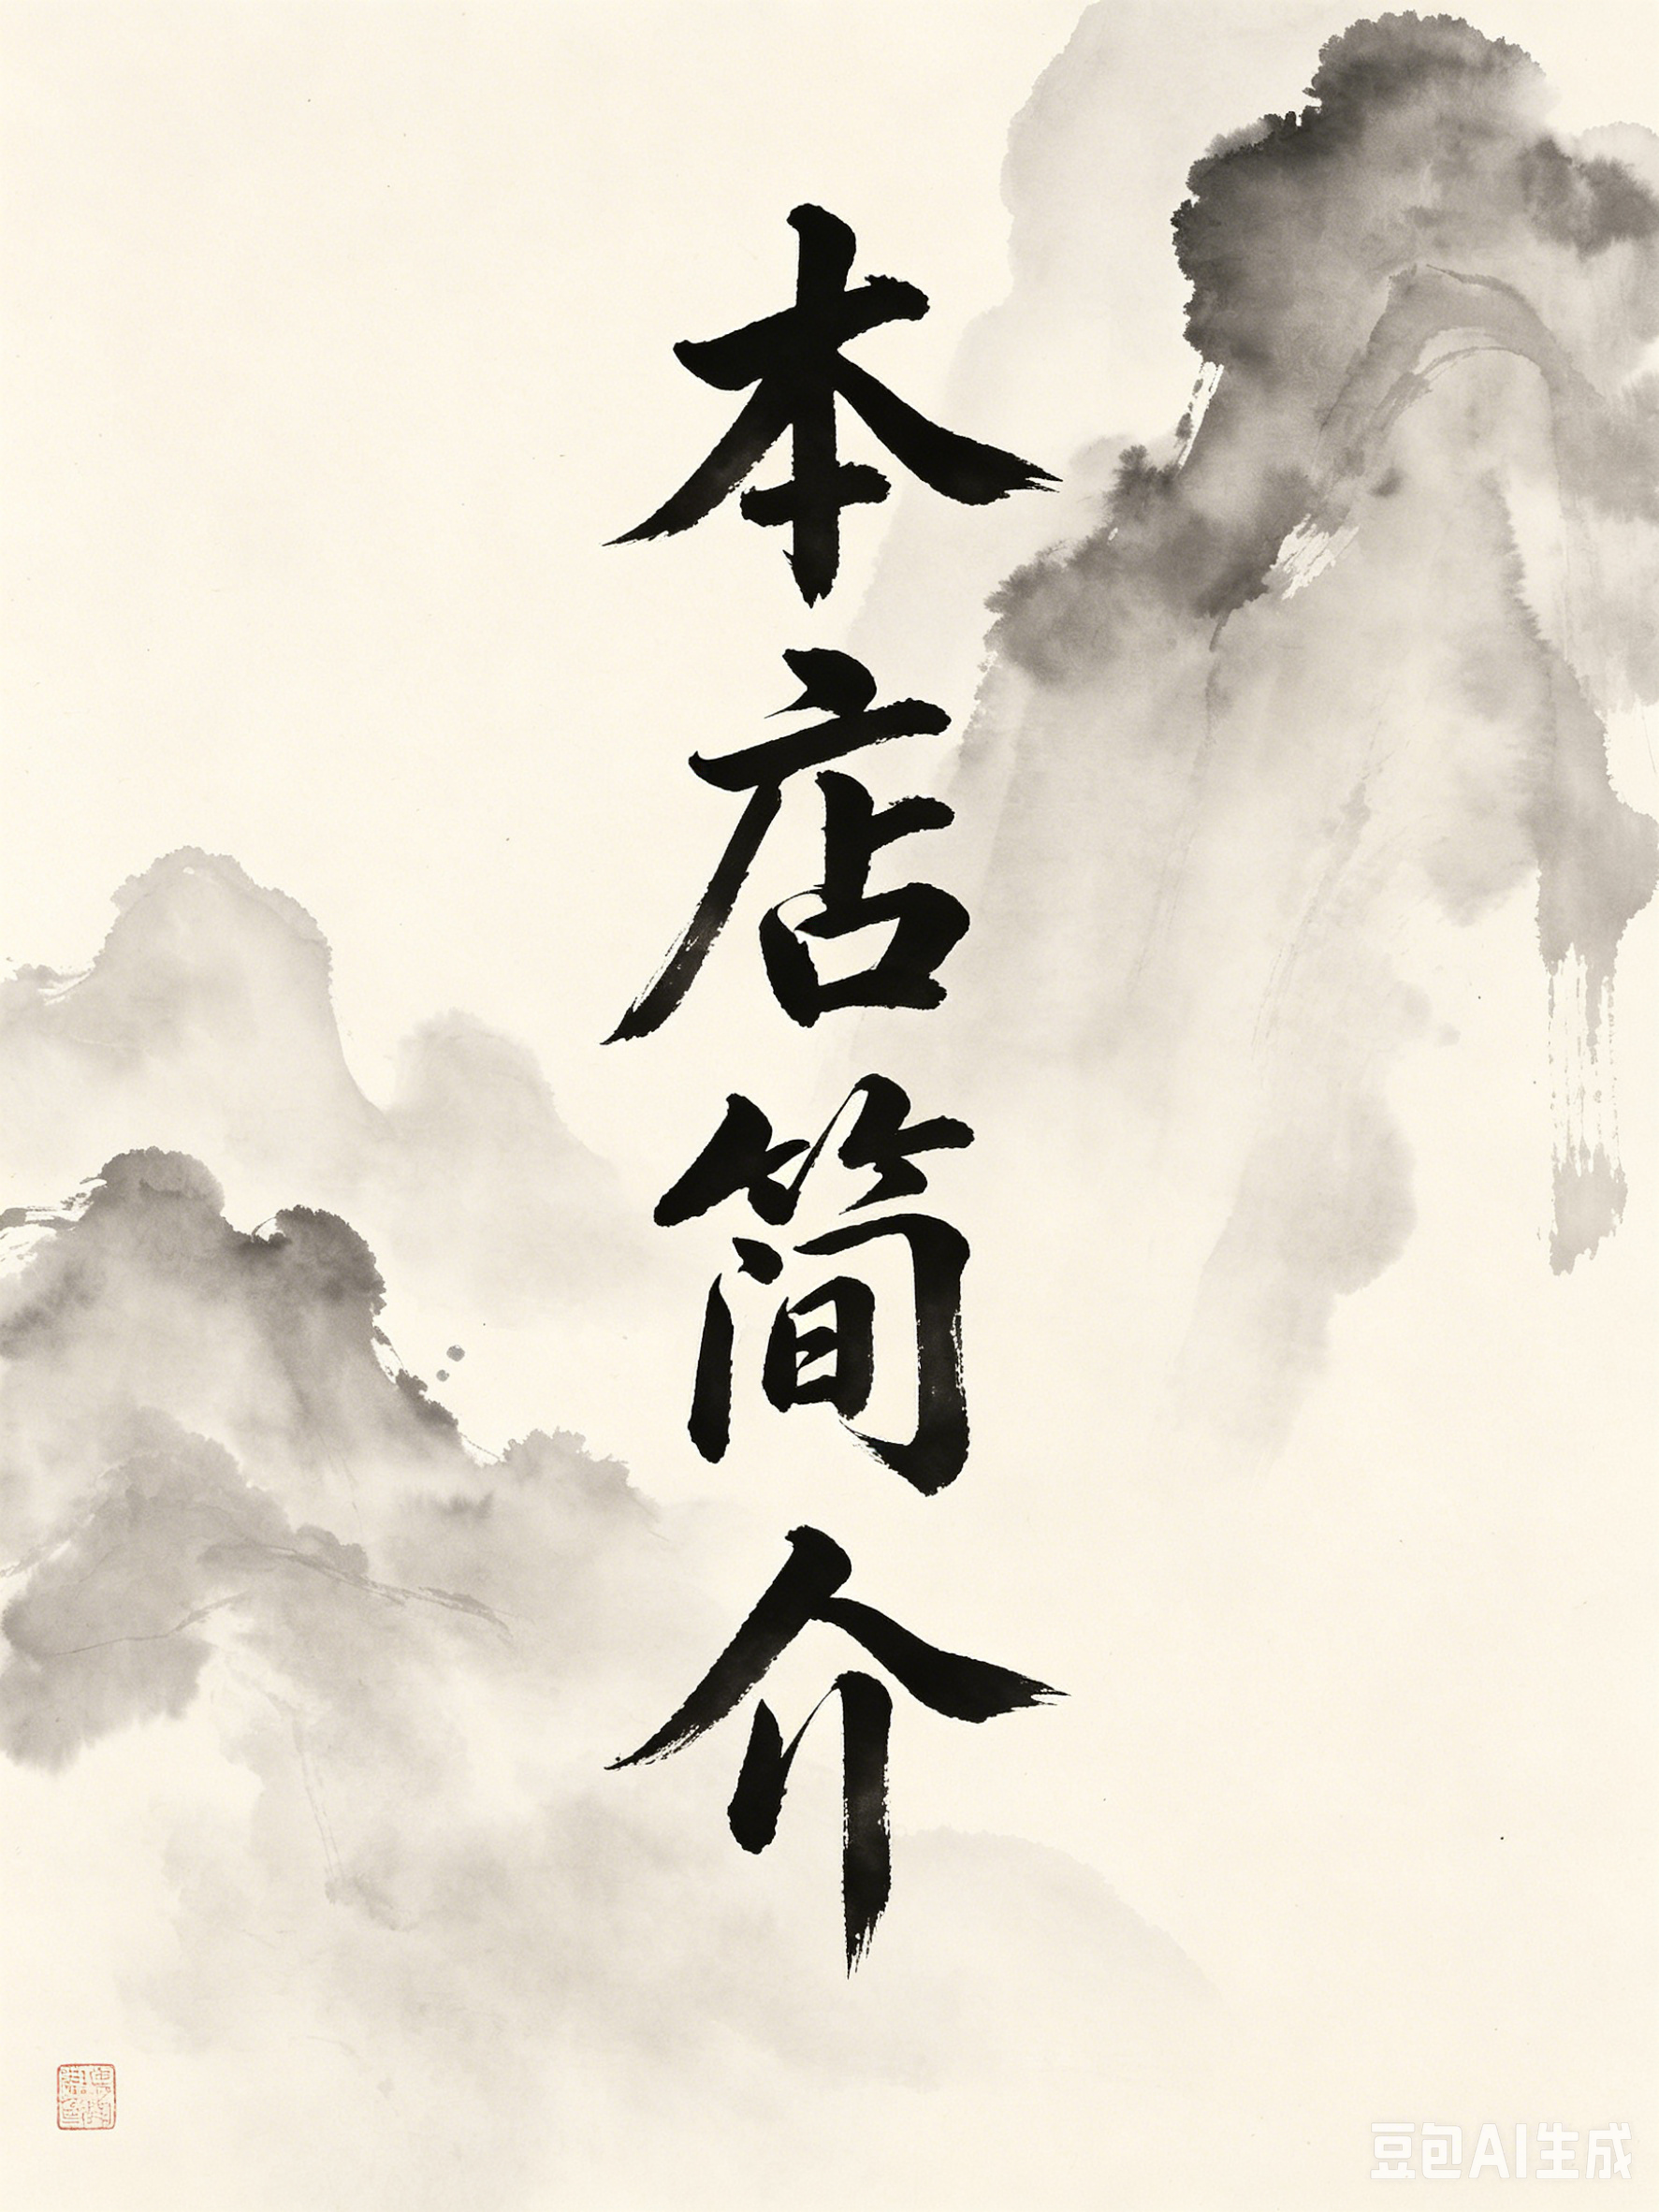 本店简介
豆包AI生成